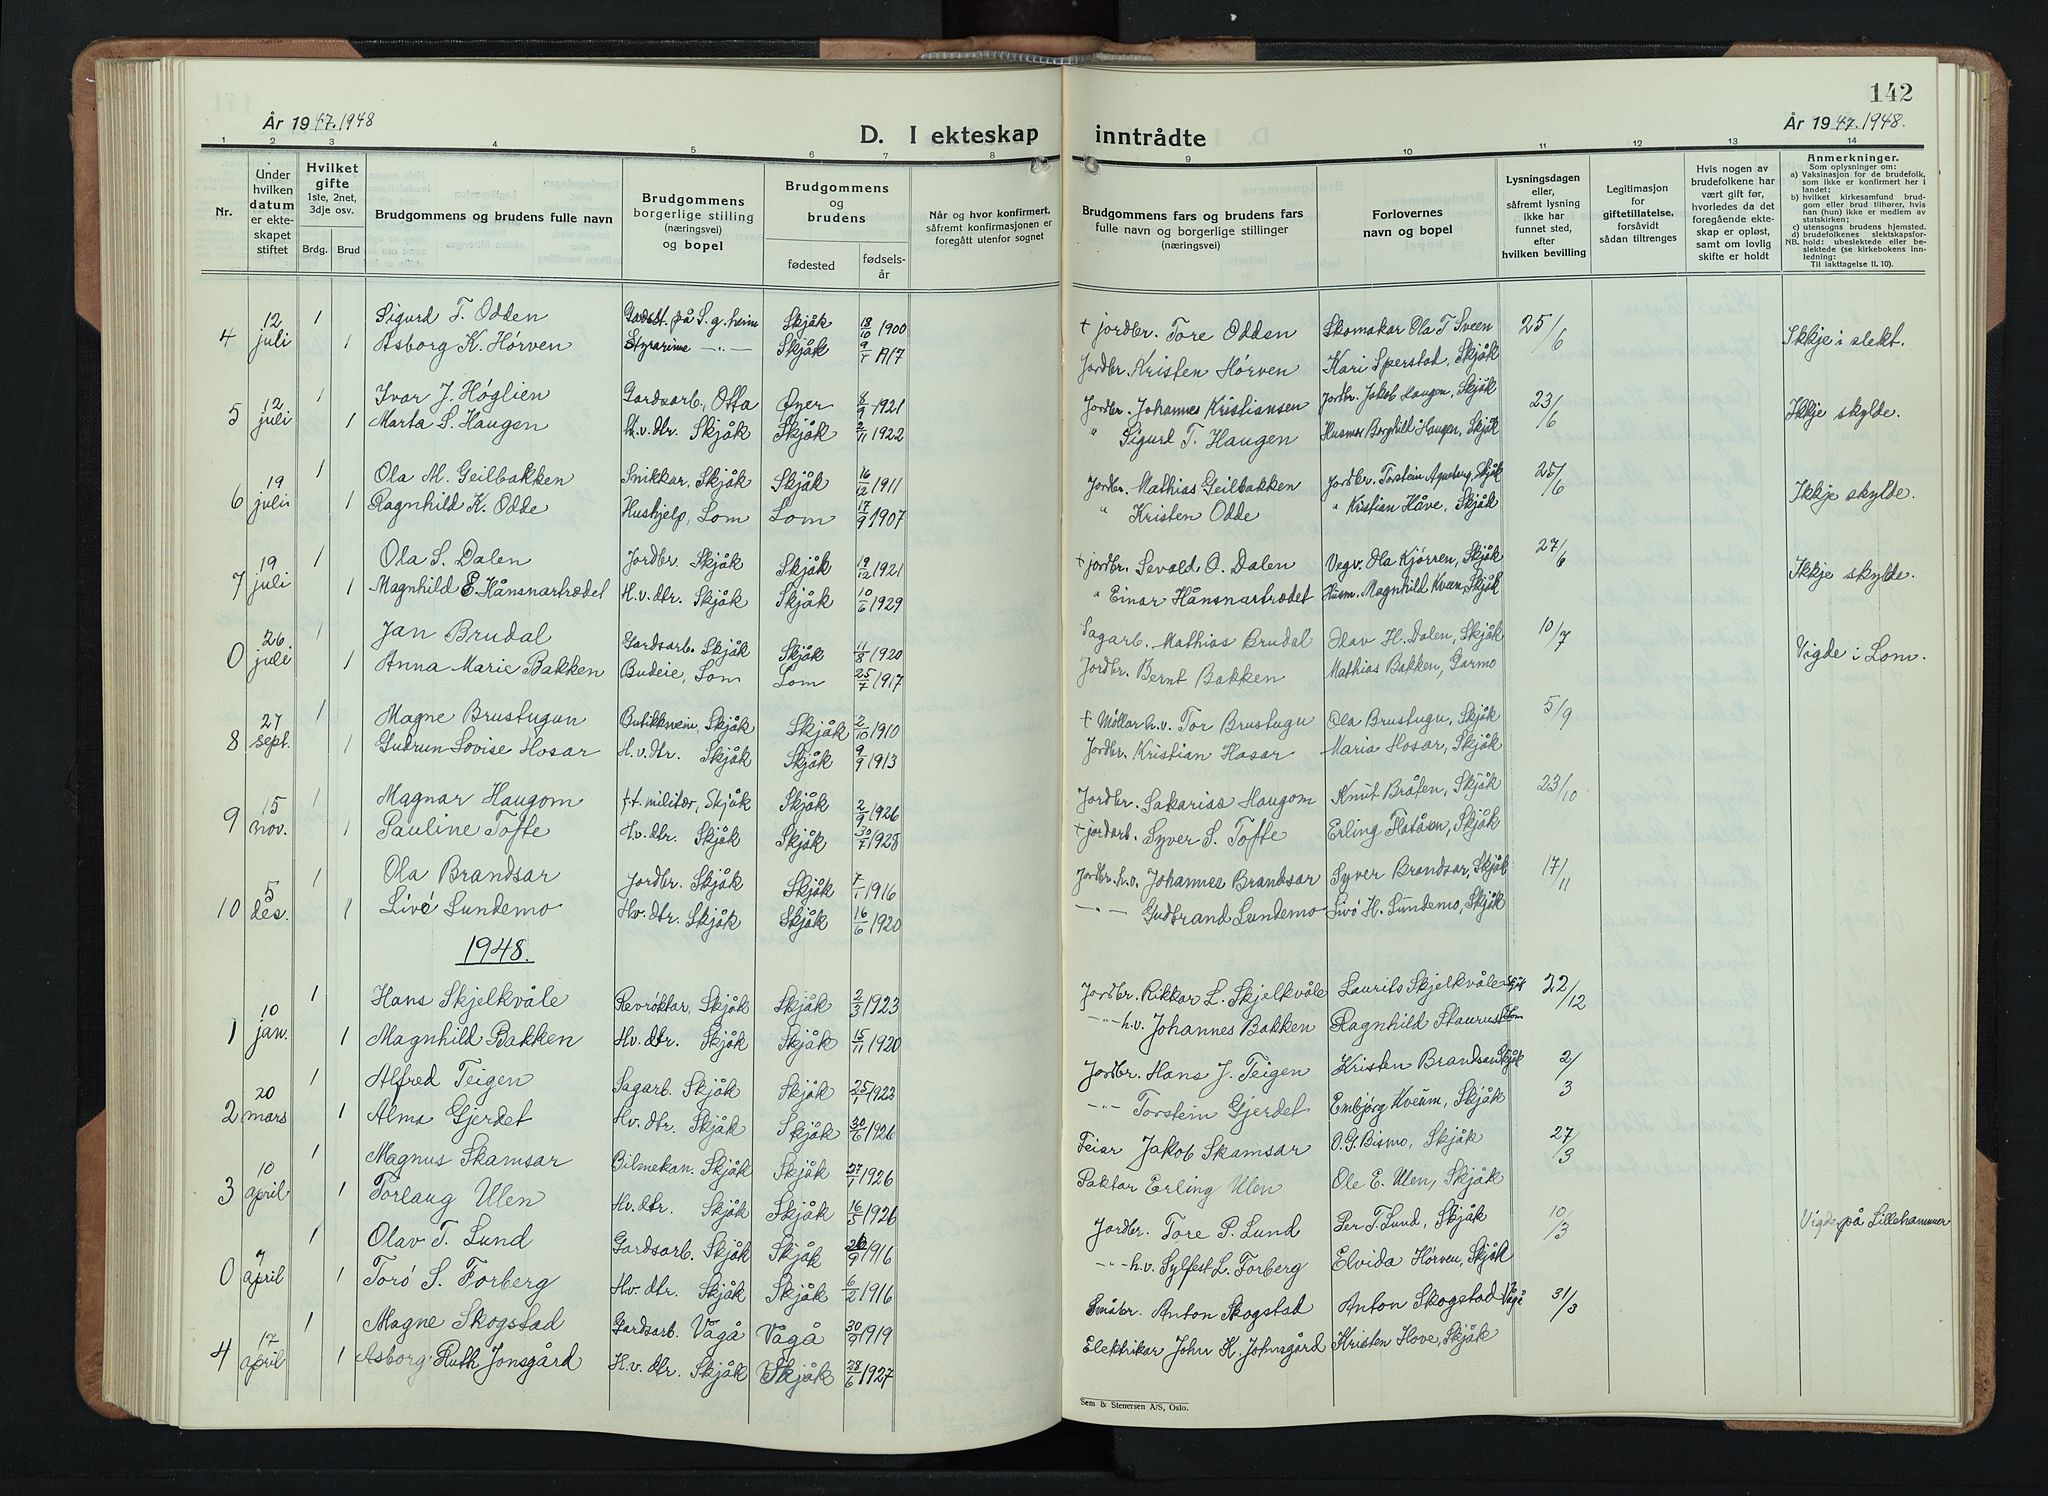 142
År 1947.1948
D. I ekteskap inntrådte
År 1947.1948.
1 2 3 4 5 6 7 8 9 10 11 12 13 14
Nr.
Under hvilken datum er ekteskapet stiftet
Hvilket gifte 1ste, 2net, 3dje osv.
Brdg. Brud
Brudgommens og brudens fulle navn
Brudgommens borgerlige stilling (næringsvei) og bopel
Brudgommens og brudens
fødested
fødselsår
Når og hvor konfirmert, såfremt konfirmasjonen er foregått utenfor sognet
Brudgommens fars og brudens fars fulle navn og borgerlige stillinger (næringsvei)
Forlovernes navn og bopel
Lysningsdagen eller, såfremt lysning ikke har funnet sted, efter hvilken bevilling
Legitimasjon for giftetillatelse, forsåvidt sådan tiltrenges
Hvis nogen av brudefolkene har vært gift før, hvorledes da det foregående ekteskap er opløst, samt om lovlig skifte er holdt
Anmerkninger.
Som oplysninger om:
a) Vaksinasjon for de brudefolk, som ikke er konfirmert her i landet;
b) hvilket kirkesamfund brudgom eller brud tilhører, hvis han (hun) ikke er medlem av statskirken;
c) utensogns brudens hjemsted.
d) brudefolkenes slektskapsforhold: ubeslektede eller beslektede (se kirkebokens innledning:
NB.
Til iakttagelse II. 10).
4 12 juli 1 Sigurd T. Odden Skjåk 18/10 1900 + jordbr. Tore Odden Skomakar Ola T Sveen 25/6 Ikkje i slekt.
1 Asborg K. Hørven Styrarinne -"- Skjåk 9/1 1917 Jordbr. Kristen Hørven Kari Sperstad, Skjåk
5 12 juli 1 Ivar J. Høglien Gardsarb., Otta Øyer 8/9 1921 Jordbr. Johannes Kristiansen Jordbr. Jakob Haugen, Skjåk 23/6 Ikkje skylde.
1 Marta S. Haugen H.v. dtr. Skjåk Skjåk 2/11 1922 " Sigurd T. Haugen Husmor Borghild Haugen, Skjåk
6 19 juli 1 Ola M. Geilbakken Snikkar, Skjåk Skjåk 16/12 1911 Jordbr. Mathias Geilbakken Jordbr. Torstein Aguberg, Skjåk 25/6 Ikkje skylde.
1 Ragnhild K. Odde Hushjelp, Lom Lom 17/9 1907 " Kristen Odde " Kristian Håve, Skjåk
7 19 juli 1 Ola S. Dalen Jordbr. Skjåk Skjåk 19/12 1921 + jordbr. Sevald O. Dalen Vegv. Ola Kjørren, Skjåk 27/6 Ikkje skylde.
1 Magnhild E. Hånsnartrædet H.v. dtr. Skjåk Skjåk 10/6 1929 " Einar Hånsnartrædet Husm. Magnhild Kvam, Skjåk
0 26 juli 1 Jan Brudal Gardsarb. Skjåk Skjåk 11/8 1920 Sagarb. Mathias Brudal Olav H. Dalen, Skjåk 10/7 Vigde i Lom.
1 Anna Marie Bakken Budeie, Lom Lom 25/7 1917 Jordbr. Bernt Bakken Mathias Bakken, Garmo
8 27 sept. 1 Magne Brustugun Butikksvein Skjåk Skjåk 2/10 1910 + Møllar h.v. Tor Brustugu Ola Brustugu, Skjåk 5/9
1 Gudrun Lovise Hosar H.v. dtr. Skjåk Skjåk 9/9 1913 Jordbr. Kristian Hosar Maria Hosar, Skjåk
9 15 nov. 1 Magnar Haugom f.t. militær, Skjåk Skjåk 2/9 1926 Jordbr. Sakarias Haugom Knut Bråten, Skjåk 23/10
1 Pauline Tofte H.v. dtr. Skjåk Skjåk 30/7 1928 + jordarb. Syver S. Tofte Erling Flatåsen, Skjåk
10 5 des. 1 Ola Brandsar Jordbr. Skjåk Skjåk 7/1 1916 Jordbr. h.v. Johannes Brandsar Syver Brandsar, Skjåk 17/11
1 Livø Lundemo H.v. dtr. Skjåk Skjåk 16/6 1920 -"- Gudbrand Lundemo Livø H. Lundemo, Skjåk
1948.
1 10 jan. 1 Hans Skjelkvåle Revrøktar, Skjåk Skjåk 2/3 1923 Jordbr. Rikkar L. Skjelkvåle Laurits Skjelkvåle Skjåk 22/12
1 Magnhild Bakken H.v. dtr. Skjåk Skjåk 15/11 1920 -"- h.v. Johannes Bakken Ragnhild Staurust Lom
2 20 mars 1 Alfred Teigen Sagarb. Skjåk Skjåk 25/1 1922 Jordbr. Hans J. Teigen Kristen Brandsar Skjåk 2/3
1 Alma Gjerdet H.v. dtr. Skjåk Skjåk 30/6 1926 -"- Torstein Gjerdet Embjørg Kveum, Skjåk
3 10 april 1 Magnus Skamsar Bilmekan. Skjåk Skjåk 27/1 1926 Feiar Jakob Skamsar O.G. Bismo, Skjåk 27/3
1 Torlaug Ulen H.v. dtr. Skjåk Skjåk 16/5 1926 Paktar Erling Ulen Ole E. Ulen, Skjåk
0 7 april 1 Olav T. Lund Gardsarb. Skjåk Skjåk 26/9 1916 Jordbr. Tore P. Lund Per T. Lund, Skjåk 10/3 Vigde på Lillehammer
1 Torø S. Forberg H.v. dtr. Skjåk Skjåk 6/2 1916 -"- h.v. Sylfest L. Forberg Elvida Hørven, Skjåk
4 17 april 1 Magne Skogstad Gardsarb. Vågå Vågå 30/9 1919 Småbr. Anton Skogstad Anton Skogstad Vågå 31/3
1 Asborg Ruth Jonsgård H.v. dtr. Skjåk Skjåk 28/6 1927 Elektrikar John K. Johnsgård Kristen Hove, Skjåk
Sem & Stenersen A/S, Oslo.